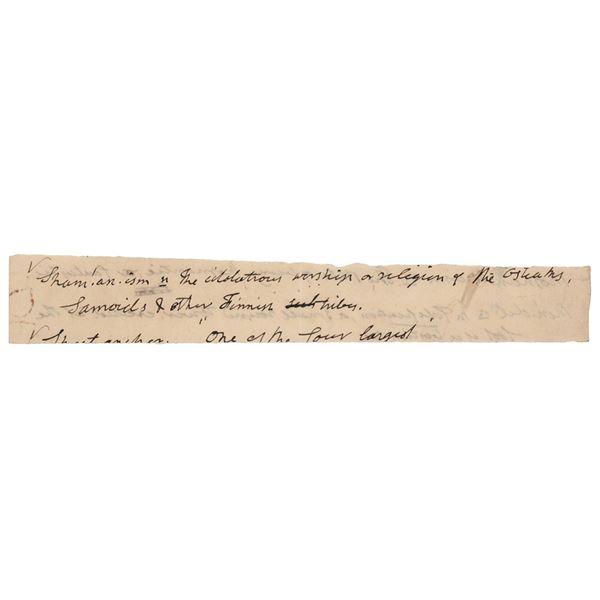 √ Sham'.an.ism n The idolatrous worship or religion of the Ostiaks,
Samoids & other Finnish sub tribes.
√ Sheet anchor. "One of the four largest